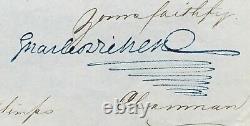 Yours faithfully
Charles Dickens
Chairman